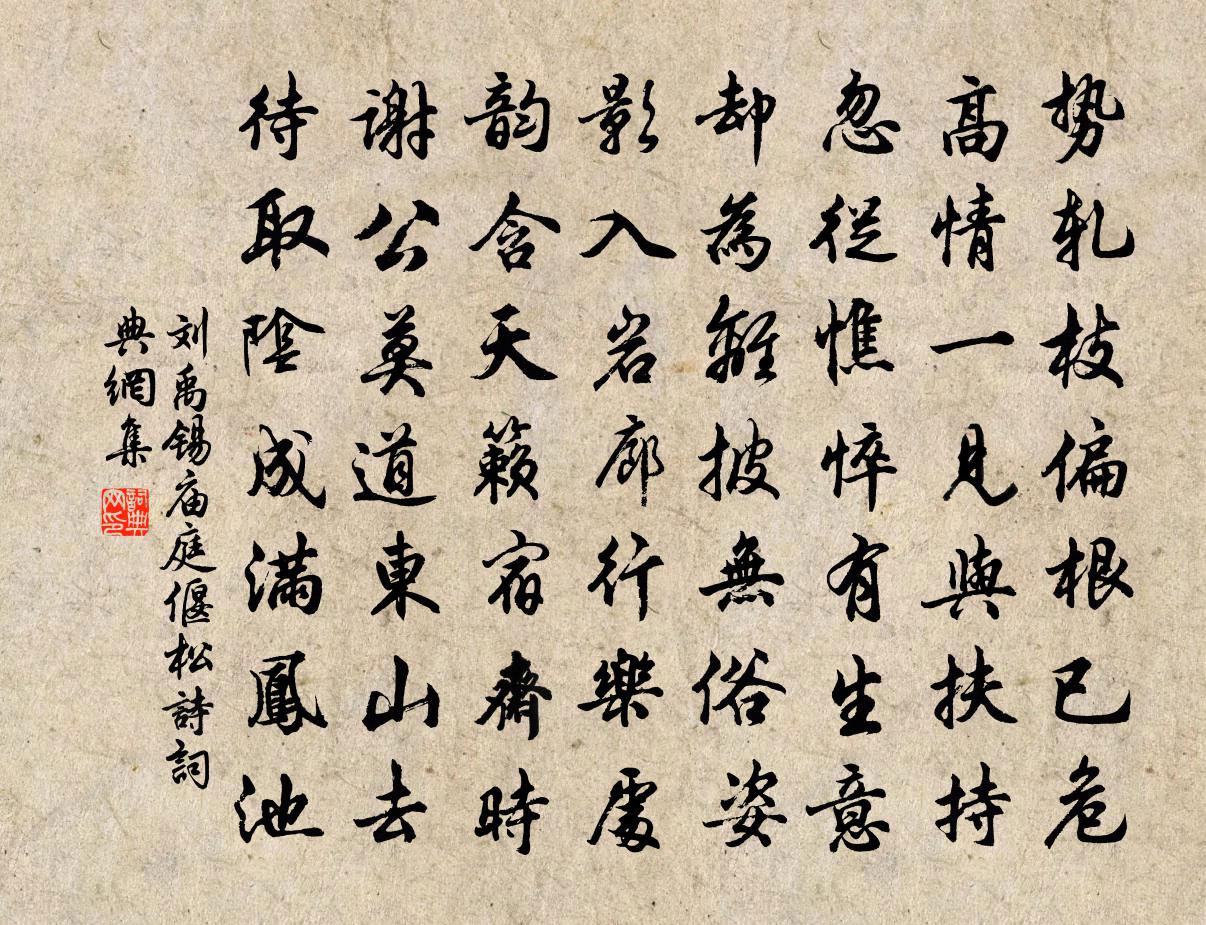 势轧枝偏根已危
高情一見與扶持
忽從憔悴有生意
却為離披無俗姿
影入岩廊行樂處
韵含天籟宿齋時
謝公莫道東山去
待取陰成滿鳳池
刘禹锡庙庭偃松詩詞
典網集
詞典
网印